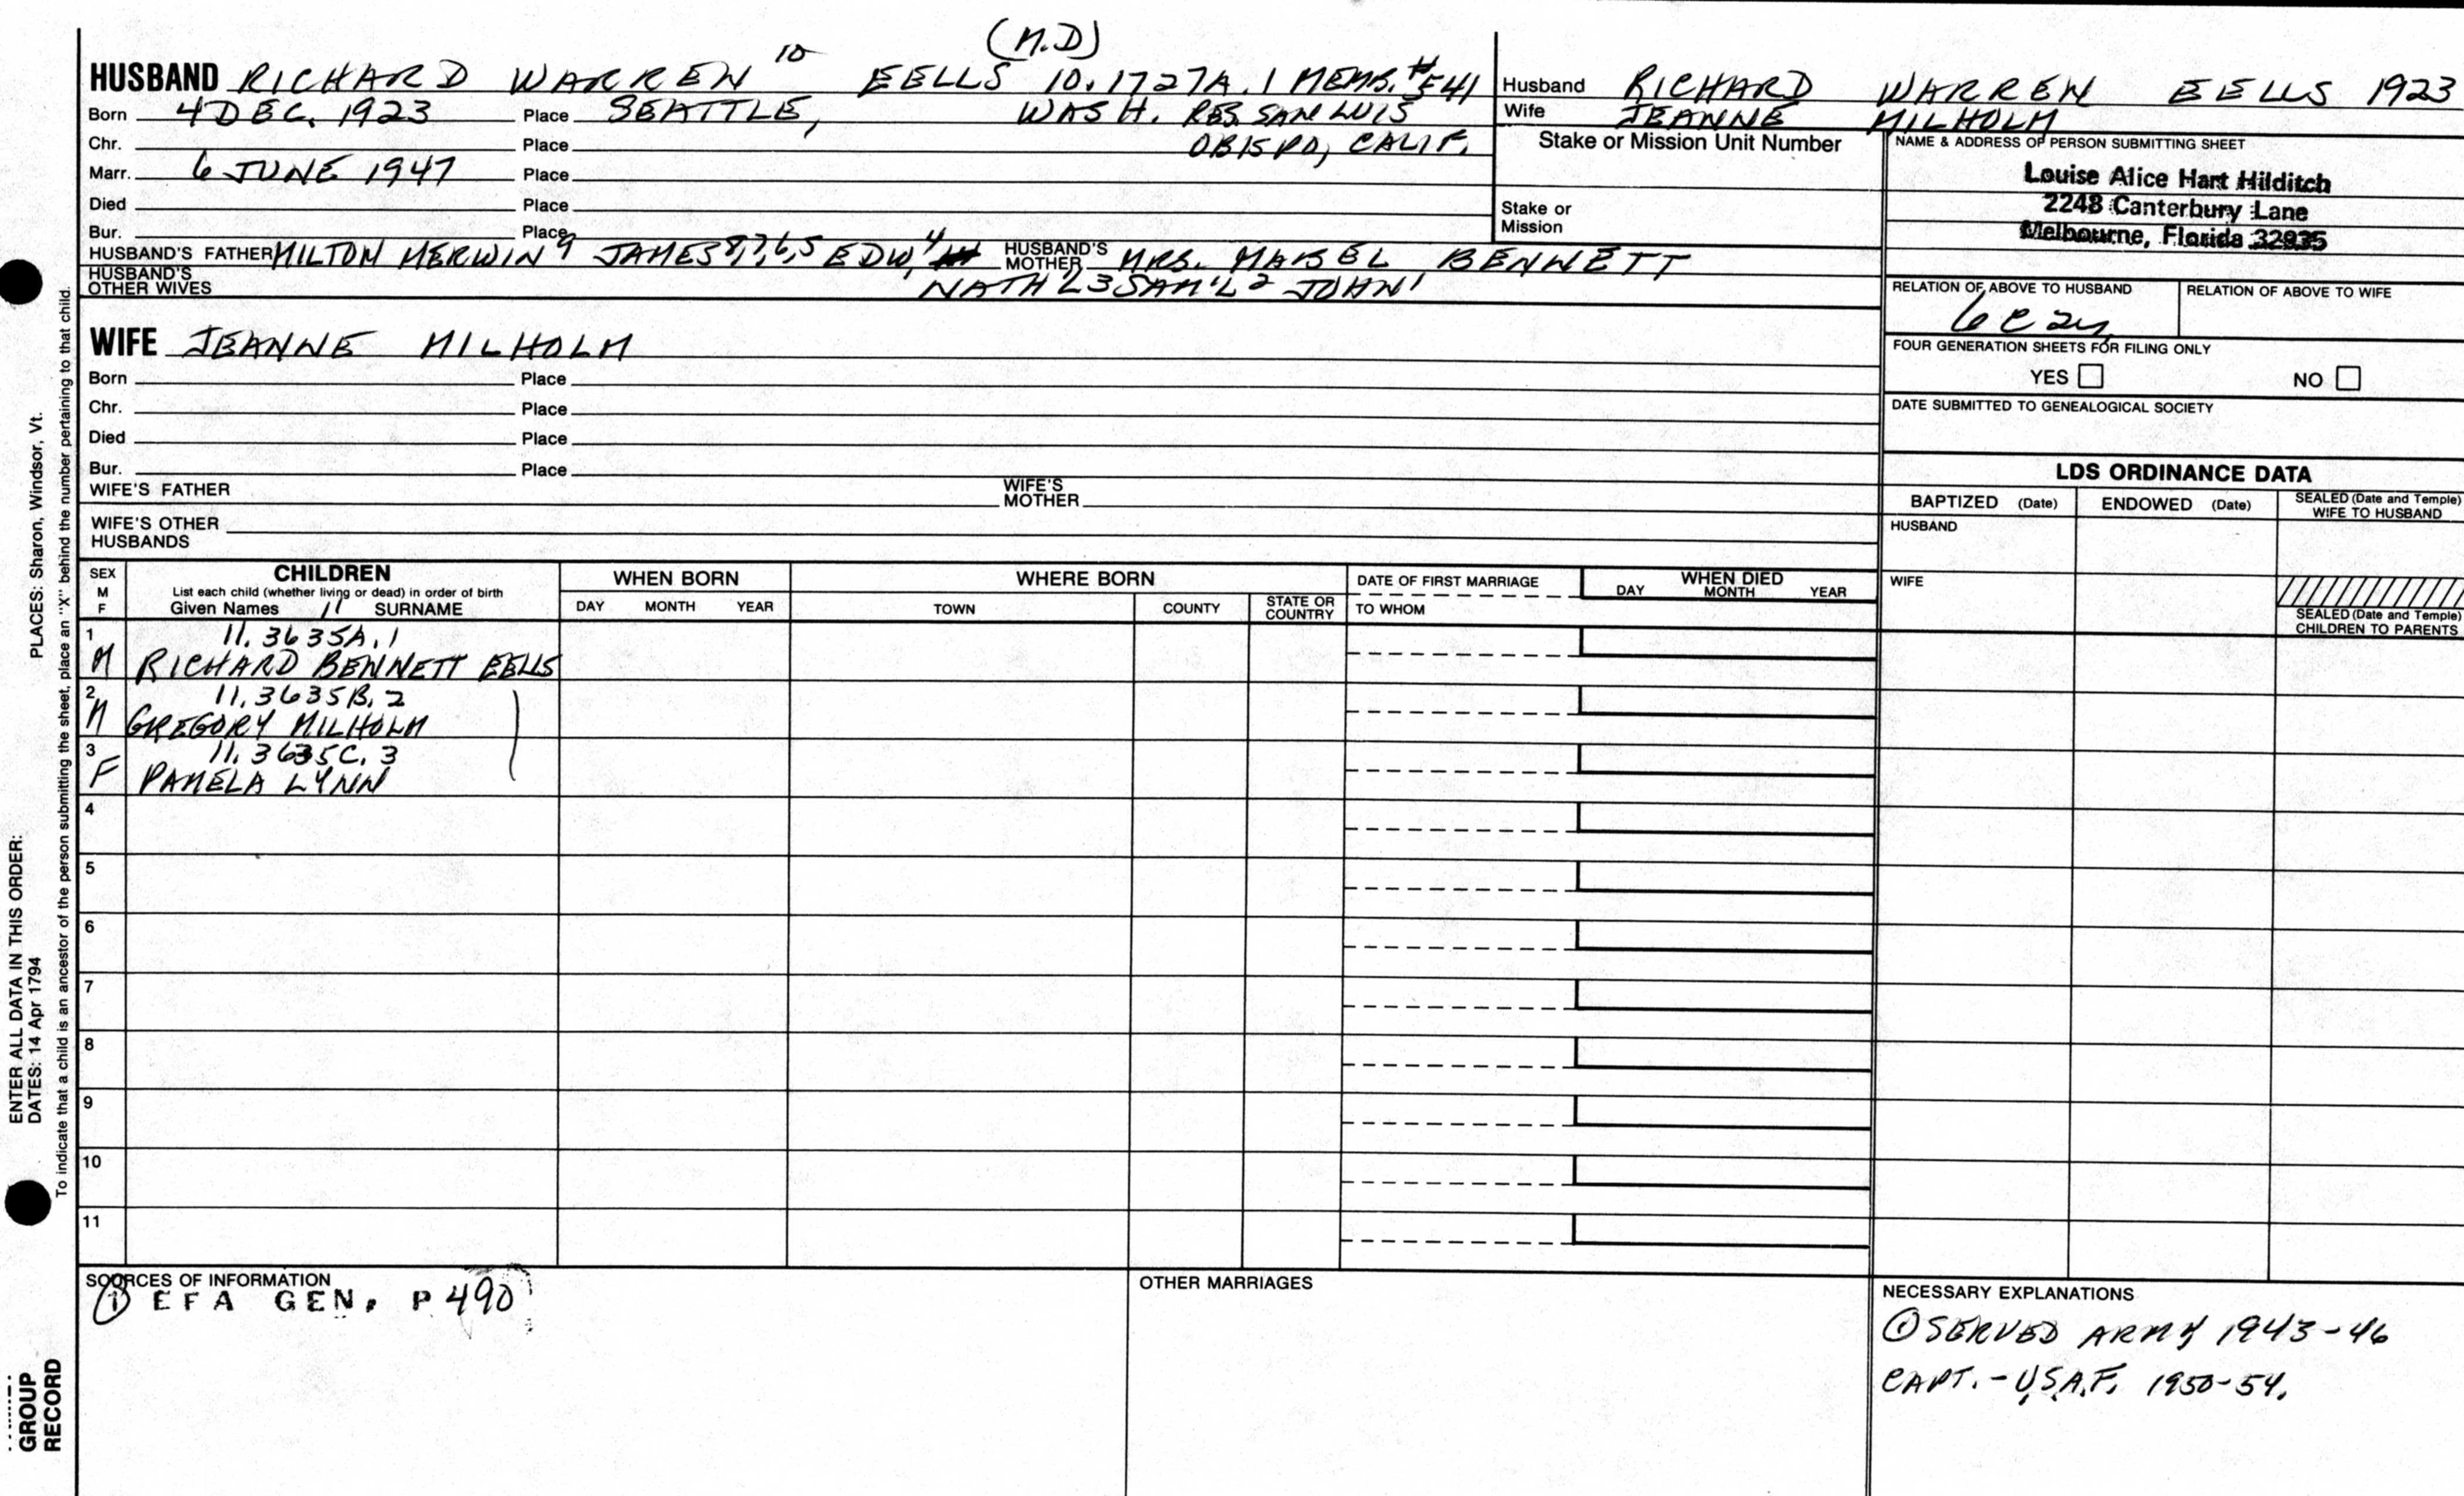 (M.D)
HUSBAND RICHARD WARREN 10 EELLS 10.1727A.1 MEMB. #541
Born 4 DEC. 1923 Place SEATTLE, WASH. RES. SAN LUIS
Chr. Place OBISPO, CALIF.
Marr. 6 JUNE 1947 Place
Died Place
Bur. Place
HUSBAND'S FATHER MILTON MERWIN 9 JAMES 8,7,6,5 EDW, 4 HUSBAND'S MOTHER MRS. MABEL BENNETT
HUSBAND'S OTHER WIVES NATH'L 3 SAM'L 2 JOHN 1
WIFE JEANNE MILHOLM
Born Place
Chr. Place
Died Place
Bur. Place
WIFE'S FATHER WIFE'S MOTHER
WIFE'S OTHER HUSBANDS
Husband RICHARD WARREN EELLS 1923
Wife JEANNE MILHOLM
Stake or Mission Unit Number
Stake or Mission
NAME & ADDRESS OF PERSON SUBMITTING SHEET
Louise Alice Hart Hilditch
2248 Canterbury Lane
Melbourne, Florida 32935
RELATION OF ABOVE TO HUSBAND RELATION OF ABOVE TO WIFE
FOUR GENERATION SHEETS FOR FILING ONLY
YES NO
DATE SUBMITTED TO GENEALOGICAL SOCIETY
LDS ORDINANCE DATA
BAPTIZED (Date) ENDOWED (Date) SEALED (Date and Temple) WIFE TO HUSBAND
HUSBAND
WIFE
SEALED (Date and Temple) CHILDREN TO PARENTS
SEX M F CHILDREN WHEN BORN WHERE BORN DATE OF FIRST MARRIAGE WHEN DIED
List each child (whether living or dead) in order of birth
Given Names 11 SURNAME DAY MONTH YEAR TOWN COUNTY STATE OR COUNTRY TO WHOM DAY MONTH YEAR
1 11.3635A.1
M RICHARD BENNETT EELLS
2 11.3635B.2
M GREGORY MILHOLM
3 11.3635C.3
F PAMELA LYNN
4
5
6
7
8
9
10
11
SOURCES OF INFORMATION
① EFA GEN. P 490
OTHER MARRIAGES
NECESSARY EXPLANATIONS
① SERVED ARMY 1943-46
CAPT. - U.S.A.F. 1950-54.
ENTER ALL DATA IN THIS ORDER:
DATES: 14 Apr 1794 PLACES: Sharon, Windsor, Vt.
To indicate that a child is an ancestor of the person submitting the sheet, place an "X" behind the number pertaining to that child.
GROUP
RECORD